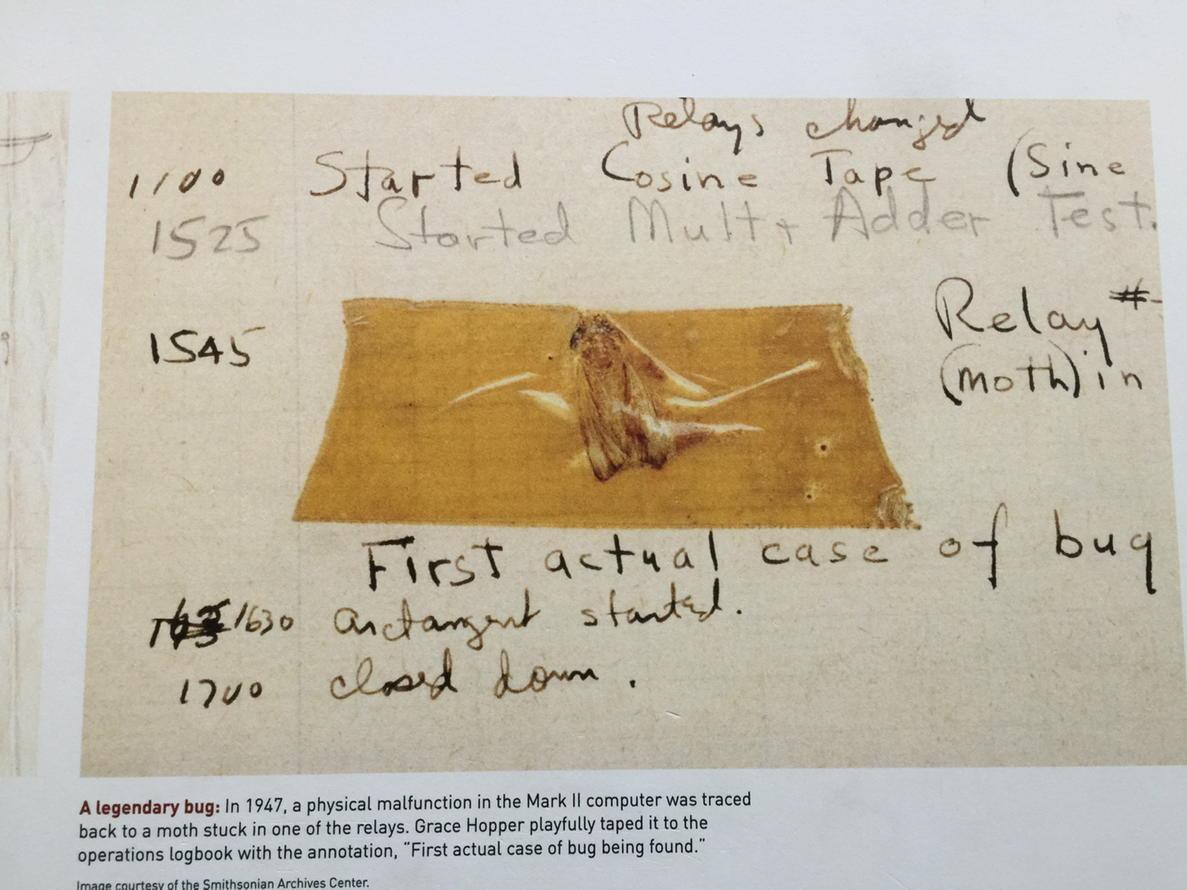 Relays changed
1100 Started Cosine Tape (Sine
1525 Started Mult+ Adder Test.
1545 Relay #
(moth) in
First actual case of bug
1630 arctangent started.
1700 closed down.
A legendary bug: In 1947, a physical malfunction in the Mark II computer was traced
back to a moth stuck in one of the relays. Grace Hopper playfully taped it to the
operations logbook with the annotation, “First actual case of bug being found.”
Image courtesy of the Smithsonian Archives Center.